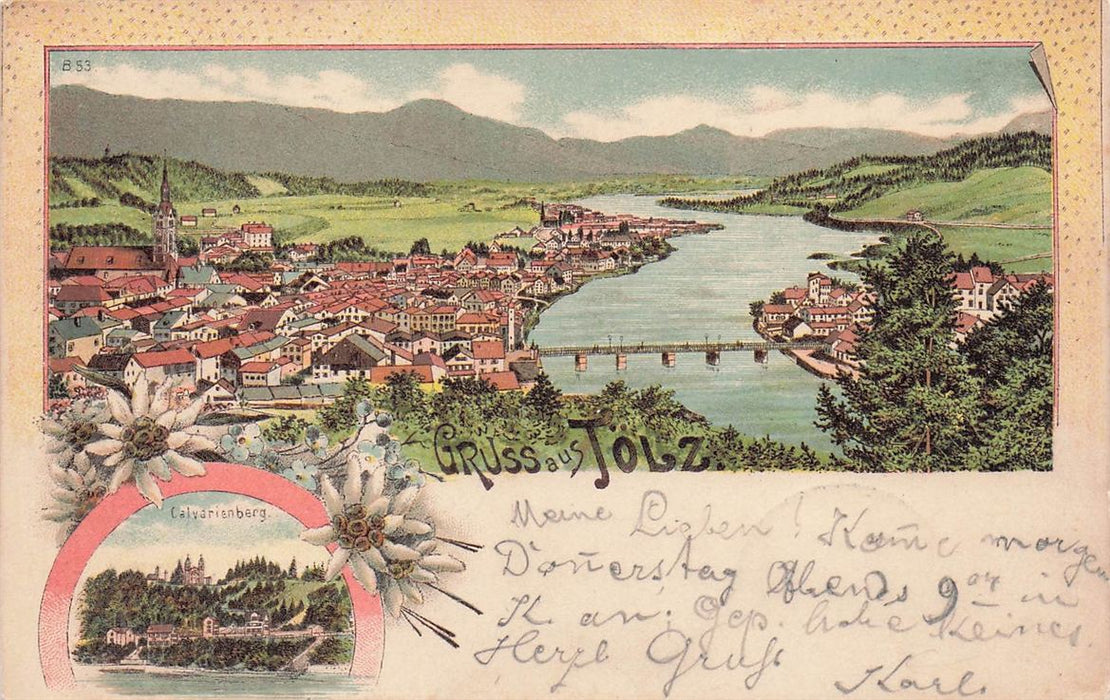 B 53
Grüss aus Tölz.
Calvarienberg.
Meine Lieben! Kom̄e morgen
Don̄erstag Abends 9 in
K. an: Gep. habe keines
Herzl Gruß
Karl